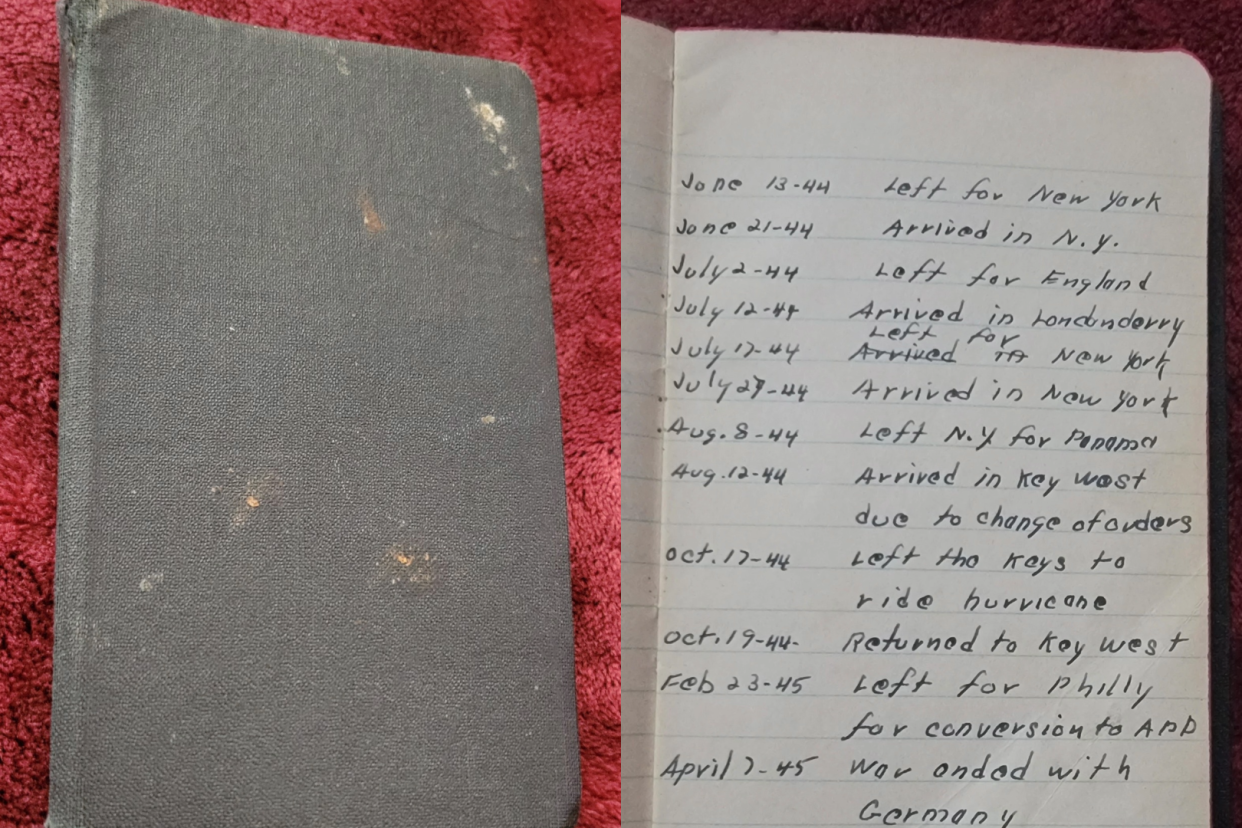 June 13-44 Left for New York
June 21-44 Arrived in N.Y.
July 2-44 Left for England
July 12-44 Arrived in Londonderry
Left for
July 17-44 Arrived in New York
July 27-44 Arrived in New York
Aug. 8-44 Left N.Y. for Panama
Aug. 12-44 Arrived in Key West
due to change of orders
Oct. 17-44 Left the Keys to
ride hurricane
Oct. 19-44- Returned to Key West
Feb 23-45 Left for Philly
for conversion to APD
April 7-45 War ended with
Germany